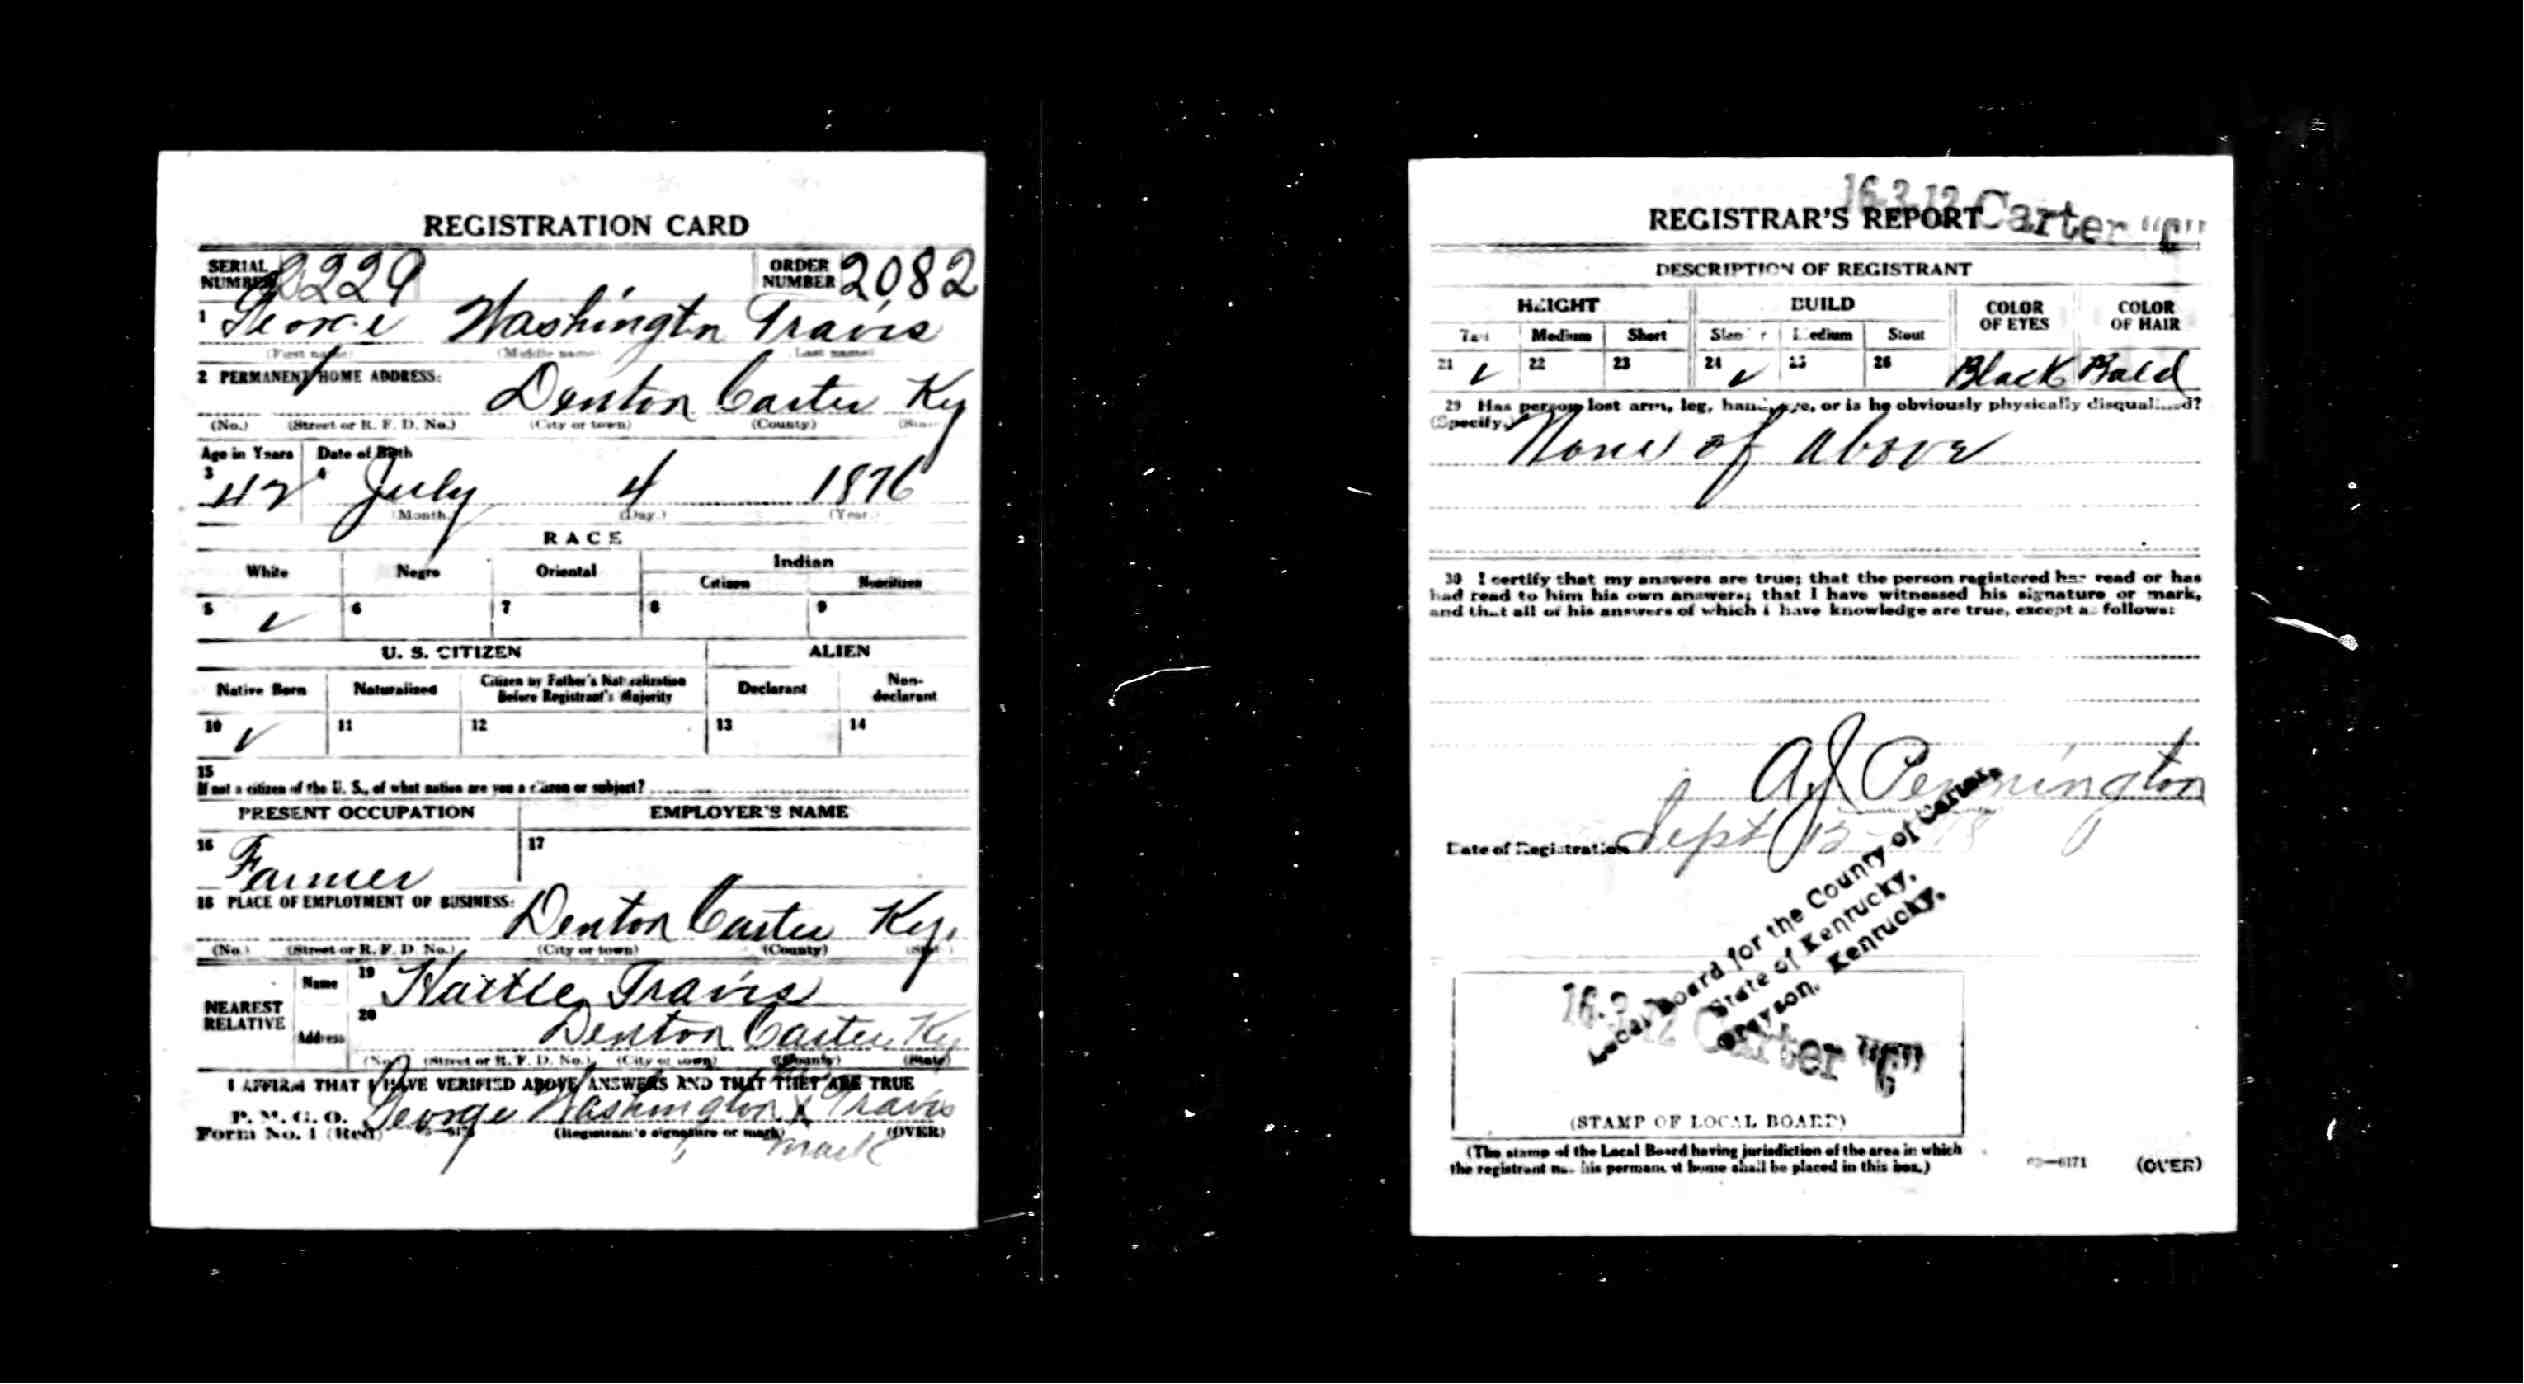 REGISTRATION CARD
SERIAL NUMBER 2229 ORDER NUMBER 2082
1 George Washington Travis
(First name) (Middle name) (Last name)
2 PERMANENT HOME ADDRESS:
Denton Carter Ky
(No.) (Street or R. F. D. No.) (City or town) (County) (State)
Age in Years Date of Birth
3 42 4 July 4 1876
(Month.) (Day.) (Year.)
RACE
White Negro Oriental Indian
Citizen Noncitizen
5 ✓ 6 7 8 9
U. S. CITIZEN ALIEN
Native Born Naturalized Citizen by Father's Naturalization Before Registrant's Majority Declarant Non-declarant
10 ✓ 11 12 13 14
15
If not a citizen of the U. S., of what nation are you a citizen or subject?
PRESENT OCCUPATION EMPLOYER'S NAME
16 Farmer 17
18 PLACE OF EMPLOYMENT OR BUSINESS:
Denton Carter Ky.
(No.) (Street or R. F. D. No.) (City or town) (County) (State)
NEAREST RELATIVE Name 19 Hattie Travis
Address 20 Denton Carter Ky
(No.) (Street or R. F. D. No.) (City or town) (County) (State)
I AFFIRM THAT I HAVE VERIFIED ABOVE ANSWERS AND THAT THEY ARE TRUE
P. M. G. O.
Form No. 1 (Red) George Washington X Travis
(Registrant's signature or mark) (OVER)
mark
16-3-12 Carter "C"
REGISTRAR'S REPORT
DESCRIPTION OF REGISTRANT
HEIGHT BUILD COLOR OF EYES COLOR OF HAIR
Tall Medium Short Slender Medium Stout
21 ✓ 22 23 24 ✓ 25 26 Black Bald
29 Has person lost arm, leg, hand, eye, or is he obviously physically disqualified?
(Specify.) None of above
30 I certify that my answers are true; that the person registered has read or has
had read to him his own answers; that I have witnessed his signature or mark,
and that all of his answers of which I have knowledge are true, except as follows:
A J Pennington
Date of Registration Sept 12 - 18
Local Board for the County of Carter,
State of Kentucky,
Grayson, Kentucky.
16-3-12 Carter "C"
(STAMP OF LOCAL BOARD)
(The stamp of the Local Board having jurisdiction of the area in which
the registrant has his permanent home shall be placed in this box.)
03—6171 (OVER)